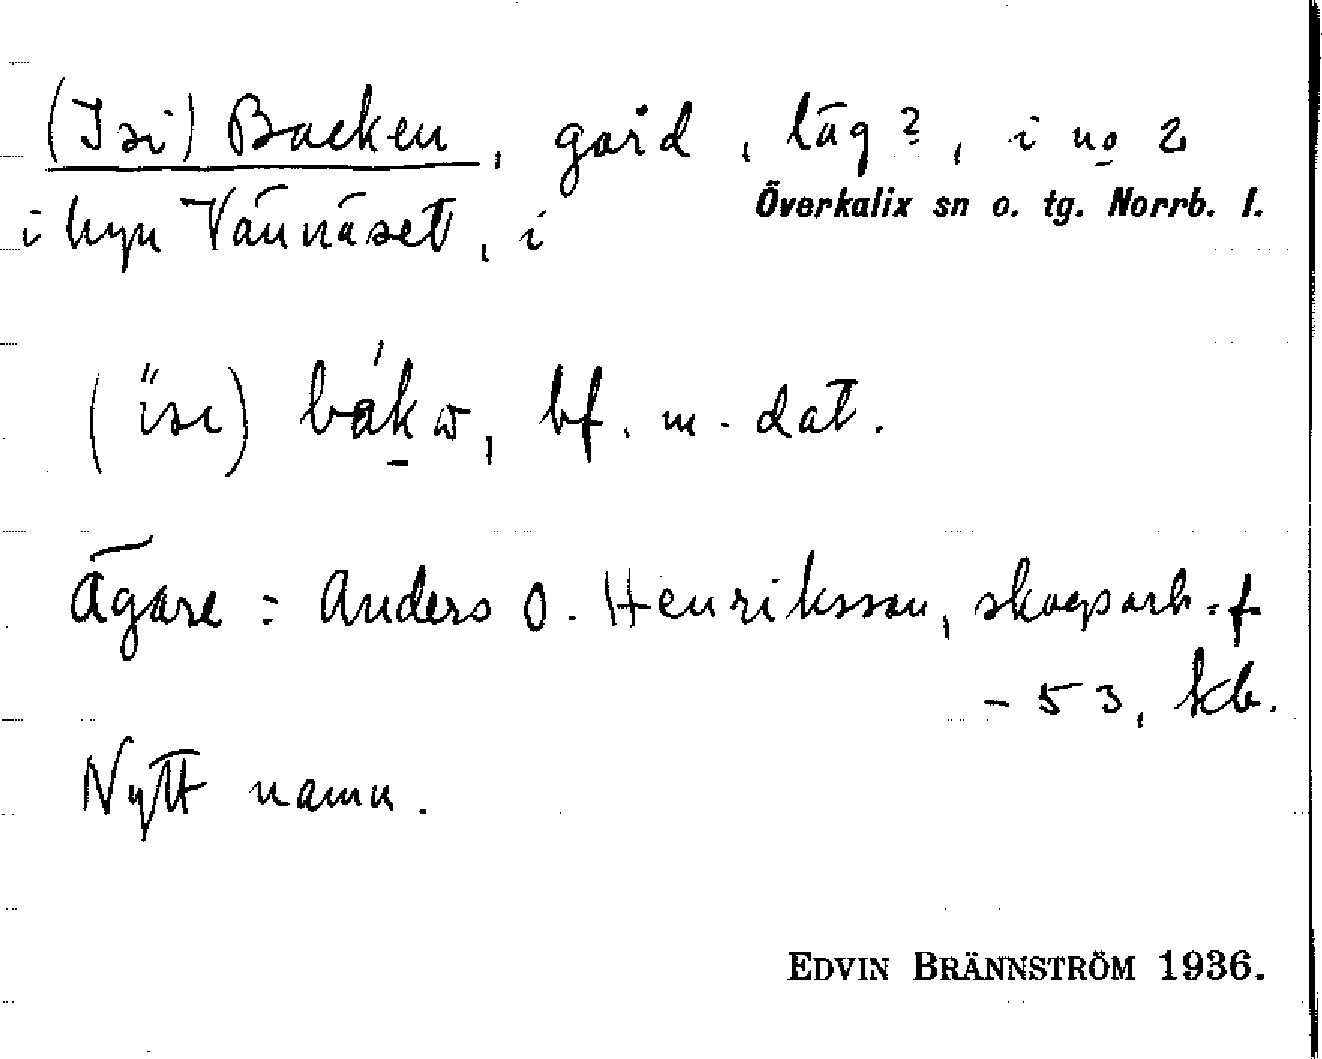 (Isi) Backen, gård, läg?, i no 2
Överkalix sn o. tg. Norrb. l.
i byn Vännäset, i
bf. m. dat.
Ägare: Anders O. Henriksson, skogsarb. f
- 53, kb.
Nytt namn.
EDVIN BRÄNNSTRÖM 1936.